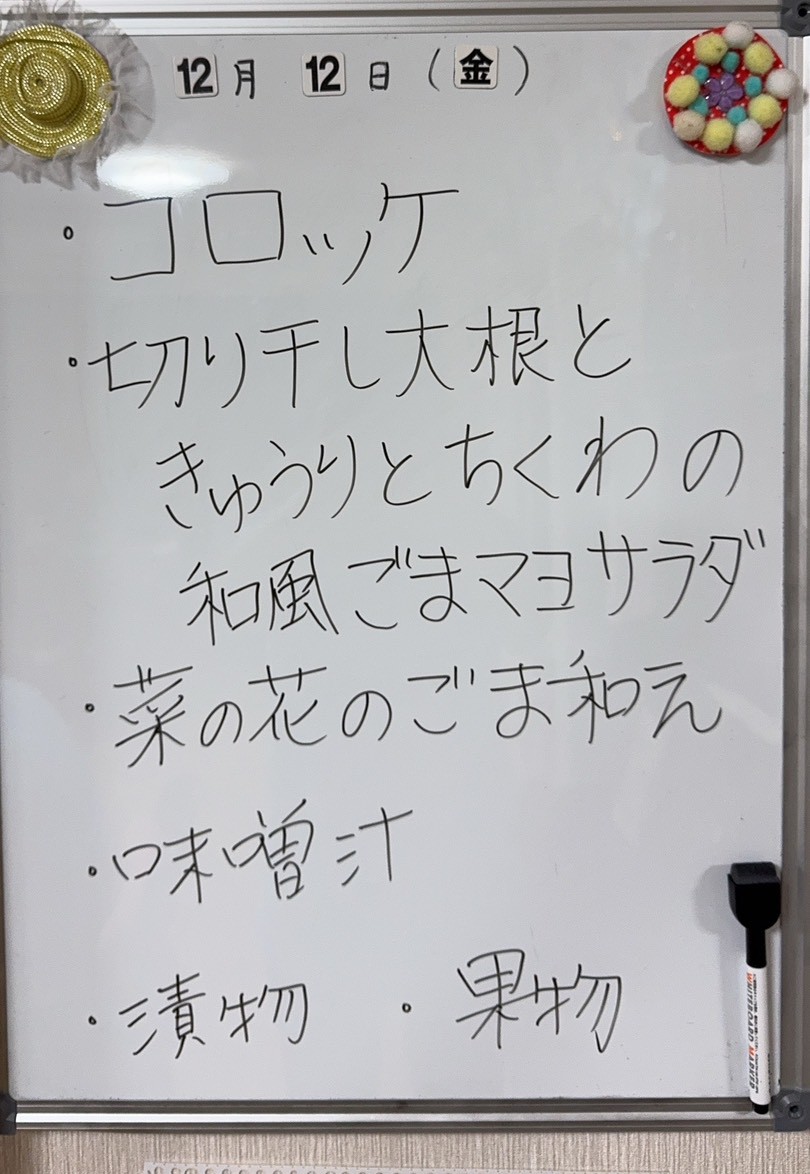 12月 12日(金)
・コロッケ
・切り干し大根と
きゅうりとちくわの
和風ごまマヨサラダ
・菜の花のごま和え
・味噌汁
・漬物 ・果物
WHITEBOARD MARKER